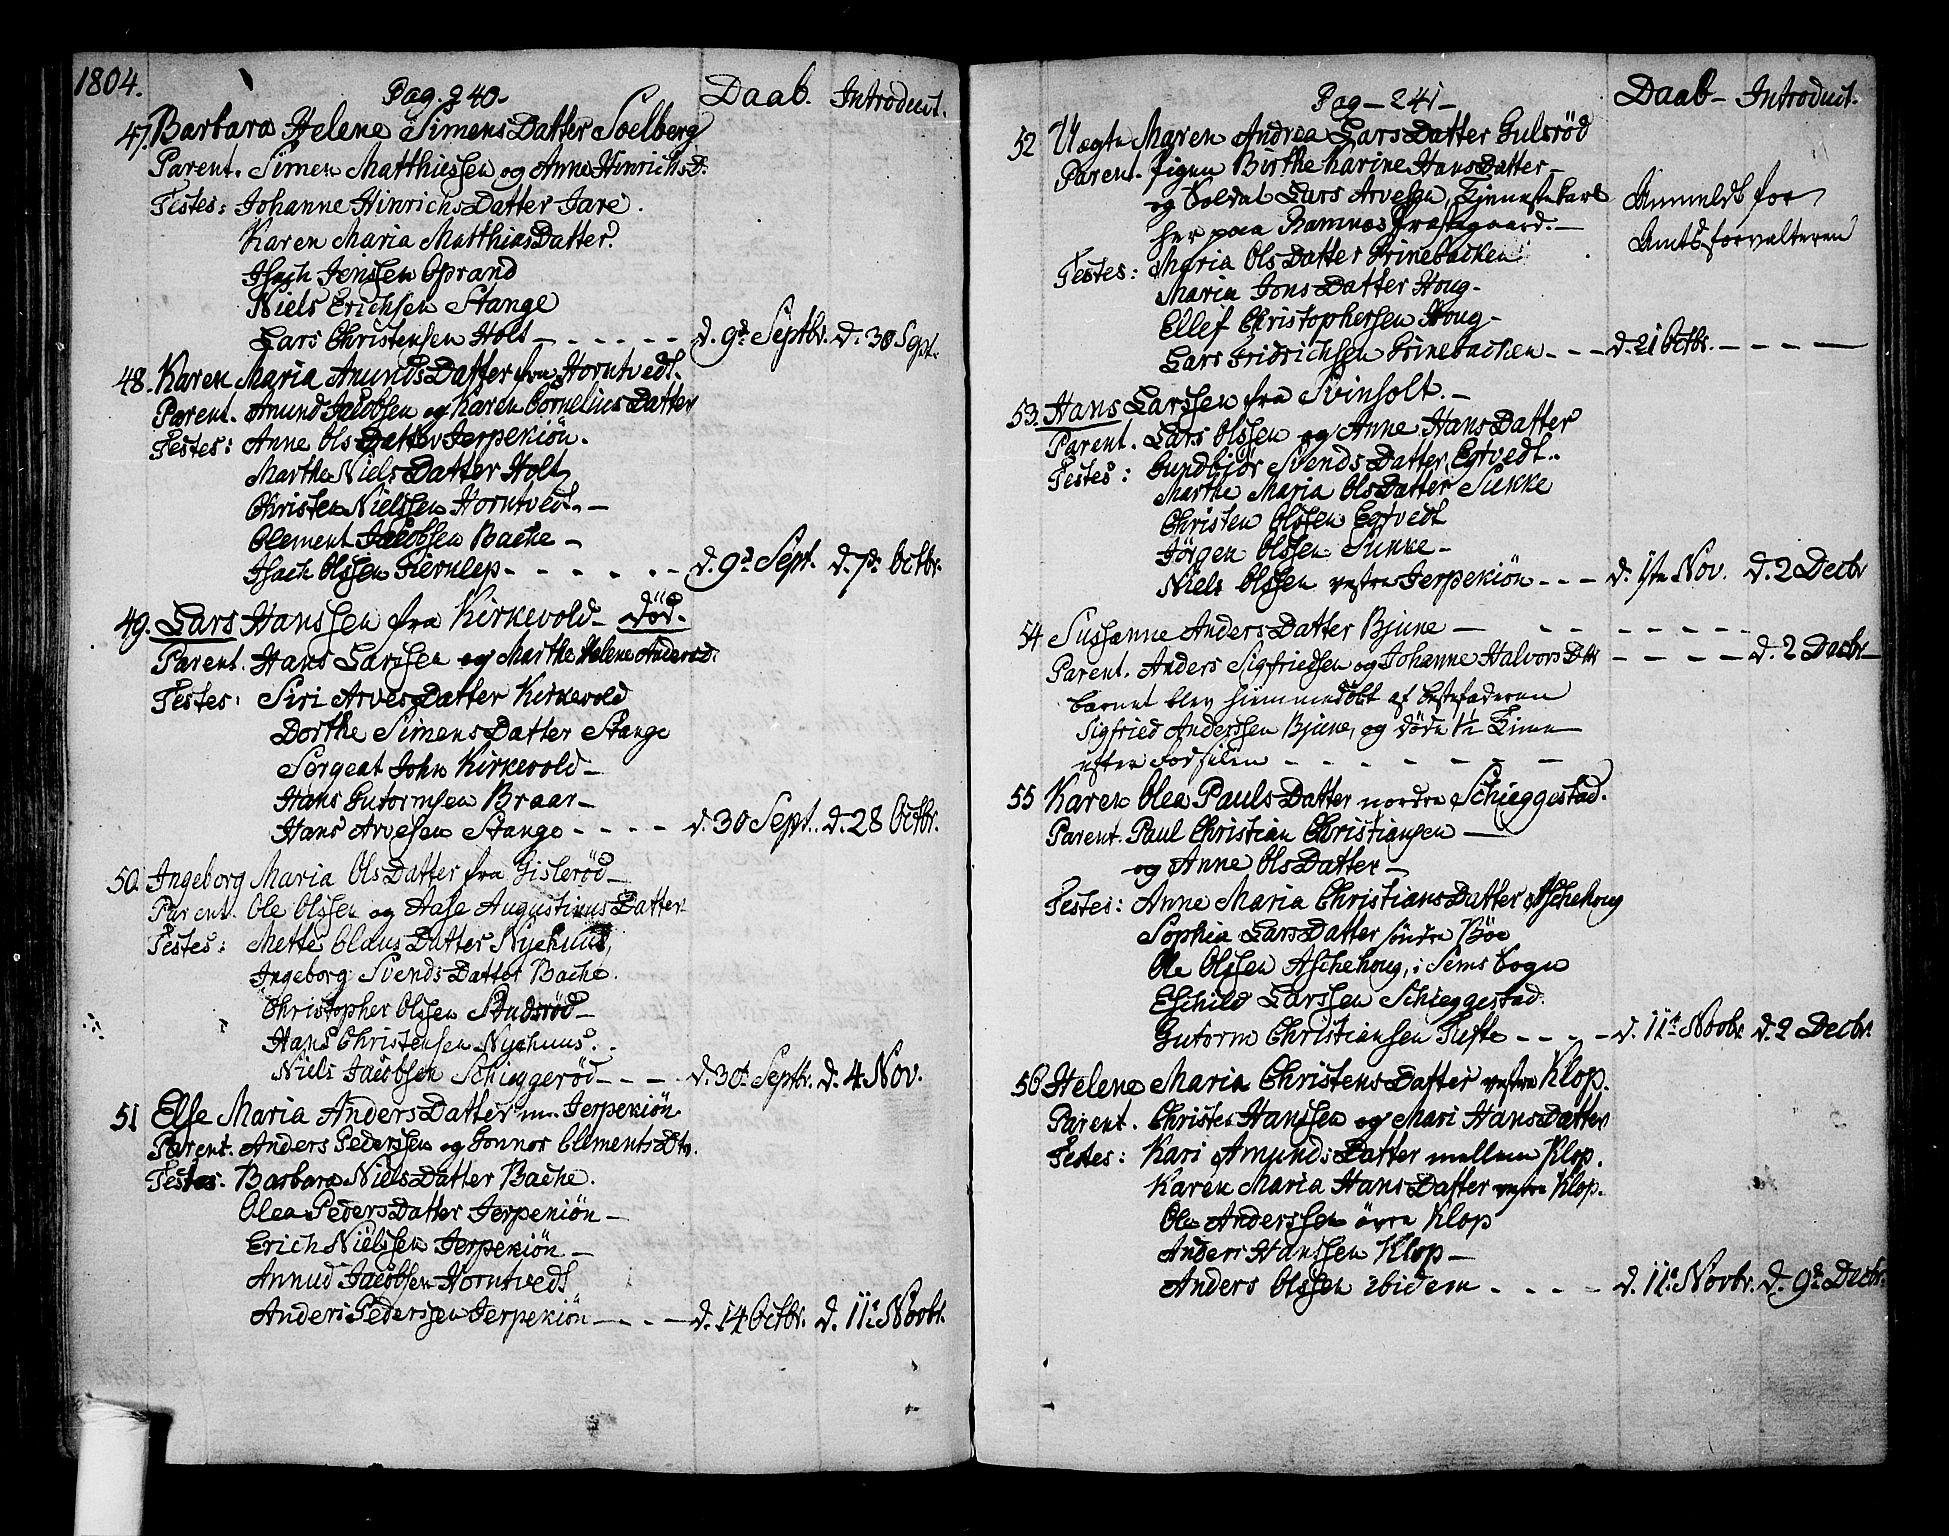 1804.
Pag. 240. Daab. Introduct.
47. Barbara Helene SimensDatter Soelberg
Parent. Simen Matthiessen og Anne HinrichsD.
Testes: Johanne HinrichsDatter Jare.
Karen Maria MatthiasDatter.
Isach Jenssen Oprand
Niels Erichsen Stange
Lars Christensen Holt - - - - - - d. 9d Septbr. d. 30 Sept.
48. Karen Maria AmundsDatter fra Horntvedt.
Parent. Amund Jacobsen og Karen CorneliusDatter
Testes: Anne OlsDatter Jerpekiön.
Marthe NielsDatter Holt
Christen Nielssen Horntvedt. -
Clement Jacobsen Bache -
Isach Olssen Fiernlep - - - - - - d. 9d Sept. d. 7de Octbr.
49. Lars Hanssen fra Kirkevold - död.
Parent. Hans Larssen og Marthe Helene Andersd.
Testes: Siri ArvesDatter Kirkevold
Dorthe SimensDatter Stange
Sergeat John Kirkevold -
Hans Gutormsen Braar -
Hans Arvesen Stange - - - - d. 30 Sept. d. 28 Octbr.
50. Ingeborg Maria OlsDatter fra Gisleröd -
Parent. Ole Olssen og Aase AugustinusDatter
Testes: Mette ClausDatter Nyehuus,
Ingeborg SvendsDatter Bache.
Christopher Olssen Sundsröd -
Hans Christensen Nyehuus.
Niels Jacobsen Schieggeröd - - - d. 30t Septbr. d. 4 Nov.
51 Else Maria AndersDatter m. Jerpekiön
Parent. Anders Pederssen og Gonnor ClementsDtr.
Testes. Barbara NielsDatter Bache.
Olea PedersDatter Jerpekiön -
Erich Nielssen Jerpekiön -
Annud Jacobsen Horntvedt
Anders Pederssen Jerpekiön - - - d. 14 Octbr. d. 11te Novbr.
Pag - 241 - Daab - Introduct.
52 Uægte Maren Andrea LarsDatter Gulsröd
Parent. Pigen Birthe Karine HansDatter -
og Soldat Lars Arvessen, Tjenestekarl
her paa Ramnes Præstegaard. -
Anmeldt for
Amtsforvalteren
Testes: Maria OlsDatter Grinebacken
Maria JonsDatter Houg -
Ellef Christophersen Houg -
Lars Fridrichsen Grinebacken - - - d. 21 Octbr. - - - -
53. Hans Larssen fra Svinholt. -
Parent. Lars Olssen og Anne HansDatter
Testes: Gundbjör SvendsDatter Egtvedt.
Marthe Maria OlsDatter Sukke
Christen Olssen Egtvedt
Jörgen Olssen Sukke -
Niels Olssen vestre Jerpekiön - - - d. 1ste Nov. d. 2 Decbr
54 Susanne AndersDatter Bjune - - - - - - - -
Parent. Anders Sigfriedsen og Johanne HalvorsDtr - - - - d. 2 Decbr -
barnet blev hiemmedöbt af bestefaderen
Sigfried Anderssen Bjune, og döde 1/2 Time
efter födselen - - - - - - -
55 Karen Olea PaulsDatter nordre Schieggestad.
Parent. Paul Christian Christiansen -
og Anne OlsDatter -
Testes: Anne Maria ChristiansDatter Aschehoug
Sophia LarsDatter söndre Böe
Ole Olssen Aschehoug, i Sems Sogn
Eschild Larssen Schieggestad.
Gutorm Christiansen Tufte - - - - d. 11te Novbr d. 2 Decbr.
56 Helene Maria ChristensDatter vestre Klop.
Parent. Christen Hanssen og Mari HansDatter
Testes: Kari AmundsDatter mellem Klop.
Karen Maria HansDatter vestre Klop.
Ole Anderssen övre Klop
Anders Hanssen Klop -
Anders Olssen ibidem - - - - d. 11te Novbr. d. 9de Decbr.